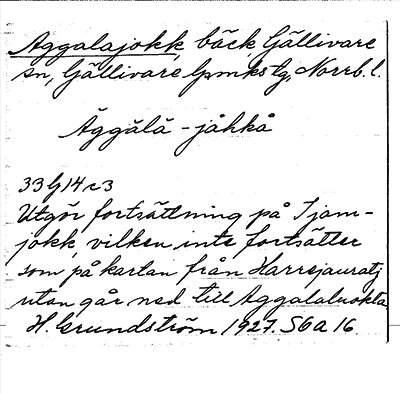 Aggalajokk, bäck, Gällivare
sn, Gällivare lpmks tg, Norrb. l.
Äggălă - jåhkå
33 G 14 c 3
Utgör fortsättning på Tjam-
jokk, vilken inte fortsätter
som på kartan från Harrejauratj
utan går ned till Aggalaluokta
H. Grundström 1927. S6a 16